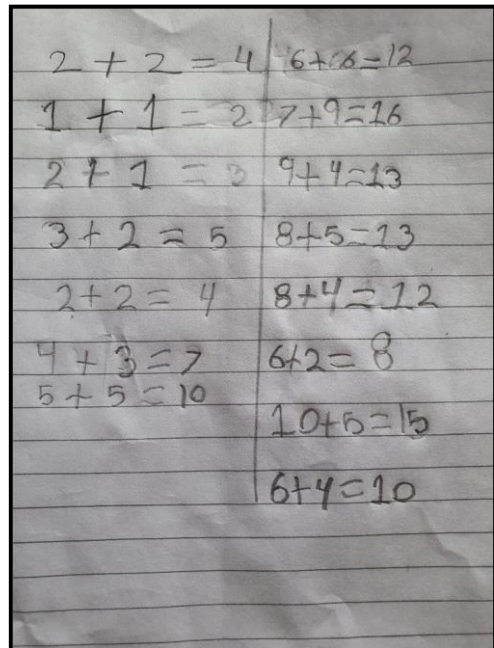 2 + 2 = 4
1 + 1 = 2
2 + 1 = 3
3 + 2 = 5
2 + 2 = 4
4 + 3 = 7
5 + 5 = 10
6+6=12
7+9=16
9+4=13
8+5=13
8+4=12
6+2=8
10+5=15
6+4=10